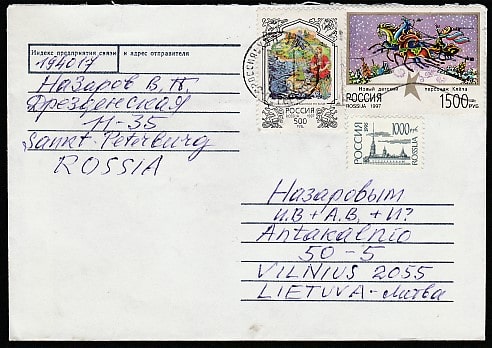 Индекс предприятия связи и адрес отправителя
194017
Назаров В.П.
Дрезденская
11-35
Sankt-Peterburg
ROSSIA
РОССИЯ
ROSSIJA 1997
500
РУБ.
Новый детский персонаж Кляча
РОССИЯ
ROSSIJA 1997
1500 РУБ
РОССИЯ 1995
1000 руб
ROSSIJA
Назаровым
И.В + А.В. + И?
Antakalnio
50-5
VILNIUS 2055
LIETUVA-Литва